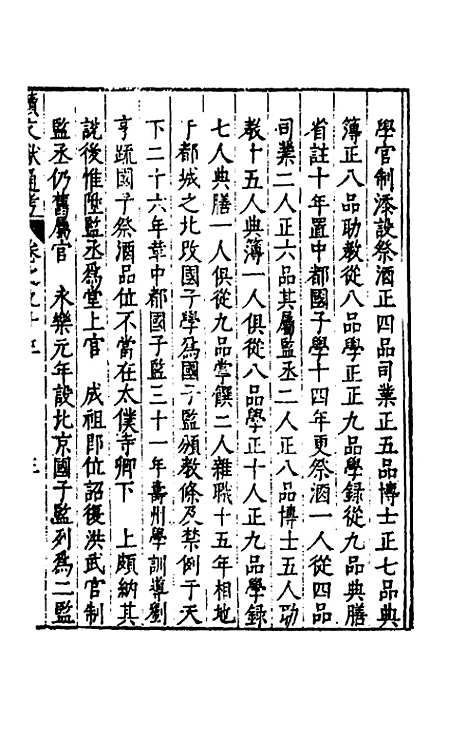 學官制添設祭酒正四品司業正五品博士正七品典
簿正八品助教從八品學正正九品學錄從九品典膳
省註十年置中都國子學十四年更祭酒一人從四品
司業二人正六品其屬監丞二人正八品博士五人助
教十五人典簿一人俱從八品學正十人正九品學錄
七人典膳一人俱從九品掌饌二人雜職十五年相地
于都城之北改國子學爲國子監頒教條及禁例于天
下二十六年革中都國子監三十一年壽州學訓導劉
亨疏國子祭酒品位不當在太僕寺卿下 上頗納其
說後惟陞監丞爲堂上官 成祖即位詔復洪武官制
監丞仍舊屬官 永樂元年設北京國子監列爲二監
續文獻通考 卷之九十三 三